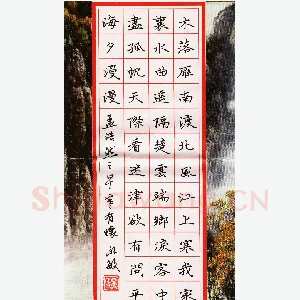 木落雁南渡北風江上寒我家
襄水曲遙隔楚雲端鄉淚客中
盡孤帆天際看迷津欲有問平
海夕漫漫
孟浩然之早寒有懷